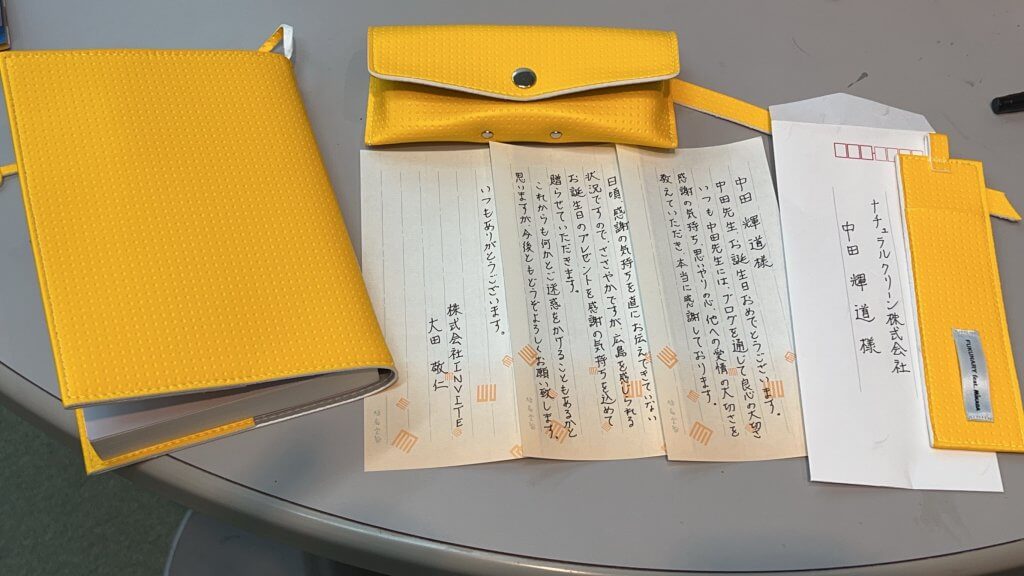 中田 輝道様
中田先生、お誕生日おめでとうございます。
いつも中田先生には、ブログを通して良心の大切さ
感謝の気持ち、思いやりの心、他への愛情の大切さを
教えていただき、本当に感謝しております。
日頃、感謝の気持ちを直にお伝えできていない
状況ですので、ささやかですが、広島を感じられる
お誕生日のプレゼントを感謝の気持ちを込めて
贈らせていただきます。
これからも何かとご迷惑をかけることもあるかと
思いますが、今後ともどうぞよろしくお願い致します。
いつもありがとうございます。
株式会社INVITE
大田 敬仁
ナチュラルクリーン株式会社
中田 輝道 様